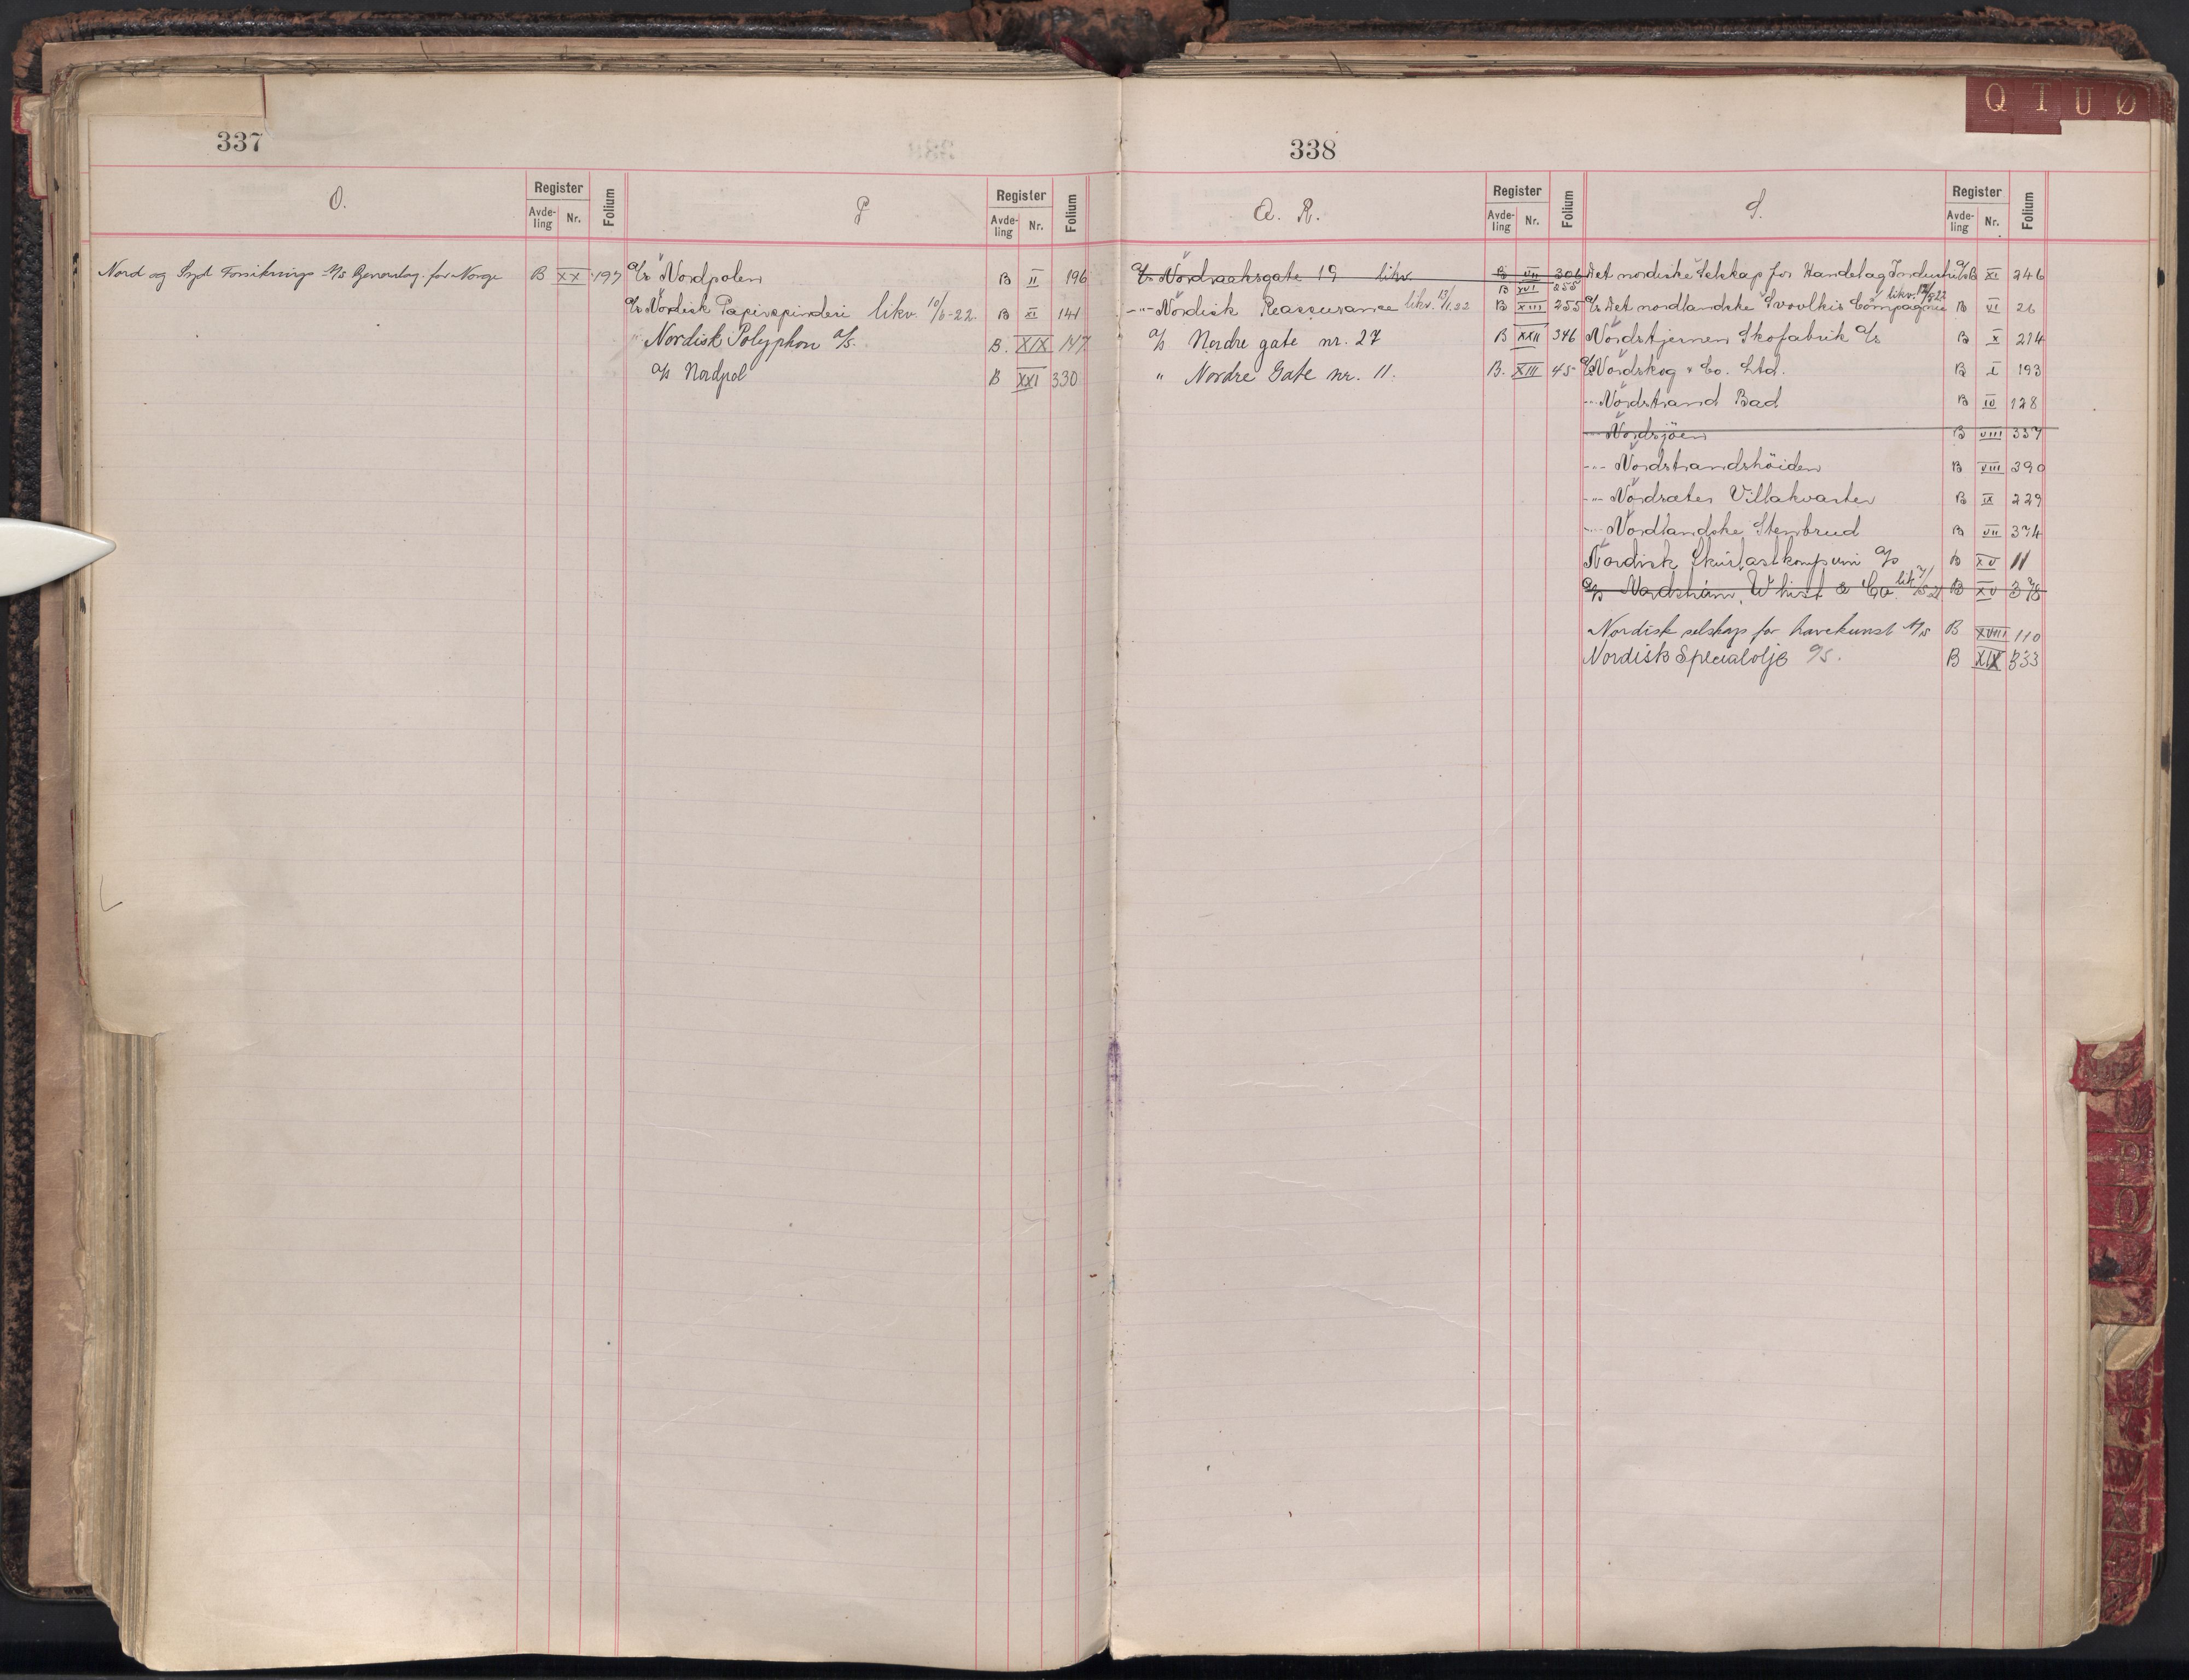 337
O.
Register
Avde-
ling
Nr.
Folium
Nord og Syd Forsikrings A/S Generalag. for Norge B XX 197
P
Register
Avde-
ling
Nr.
Folium
A/s Nordpolen B II 196
A/s Nordisk Papirspinderi likv. 10/6-22. B XI 141
" Nordisk Polyphon A/S. B. XIX 147
A/s Nordpol B XXI 330
338
Q. R.
Register
Avde-
ling
Nr.
Folium
A/s Nordraaksgate 19 likv. B VII 306
B XVI 255
-"- Nordisk Reassurance likv. 13/11.22 B XIII 255
A/s Nordre gate nr. 27 B XXII 346
" Nordre Gate nr. 11. B. XIII 45
S.
Register
Avde-
ling
Nr.
Folium
Det nordiske Selskap for Handel og Industri A/s B XI 246
A/s Det nordlandske Svovlkis Compagnie likv. B VI 26
Nordstjernen Skofabrik A/s B X 274
A/s Nordskog & Co. Ltd. B I 193
-"- Nordstrand Bad B IV 128
-"- Nordsjöen B VIII 337
-"- Nordstrandshöiden B VIII 390
-"- Nordsæter Villakvarter B IX 229
-"- Nordlandske Stenbrud B VII 374
Nordisk A/s B XV 11
A/s Whist & Co. lik. B XV 378
Nordisk selskap for havekunst A/S B XVIII 110
Nordisk Specialolje A/S. B XIX 333
Q T U Ø
P